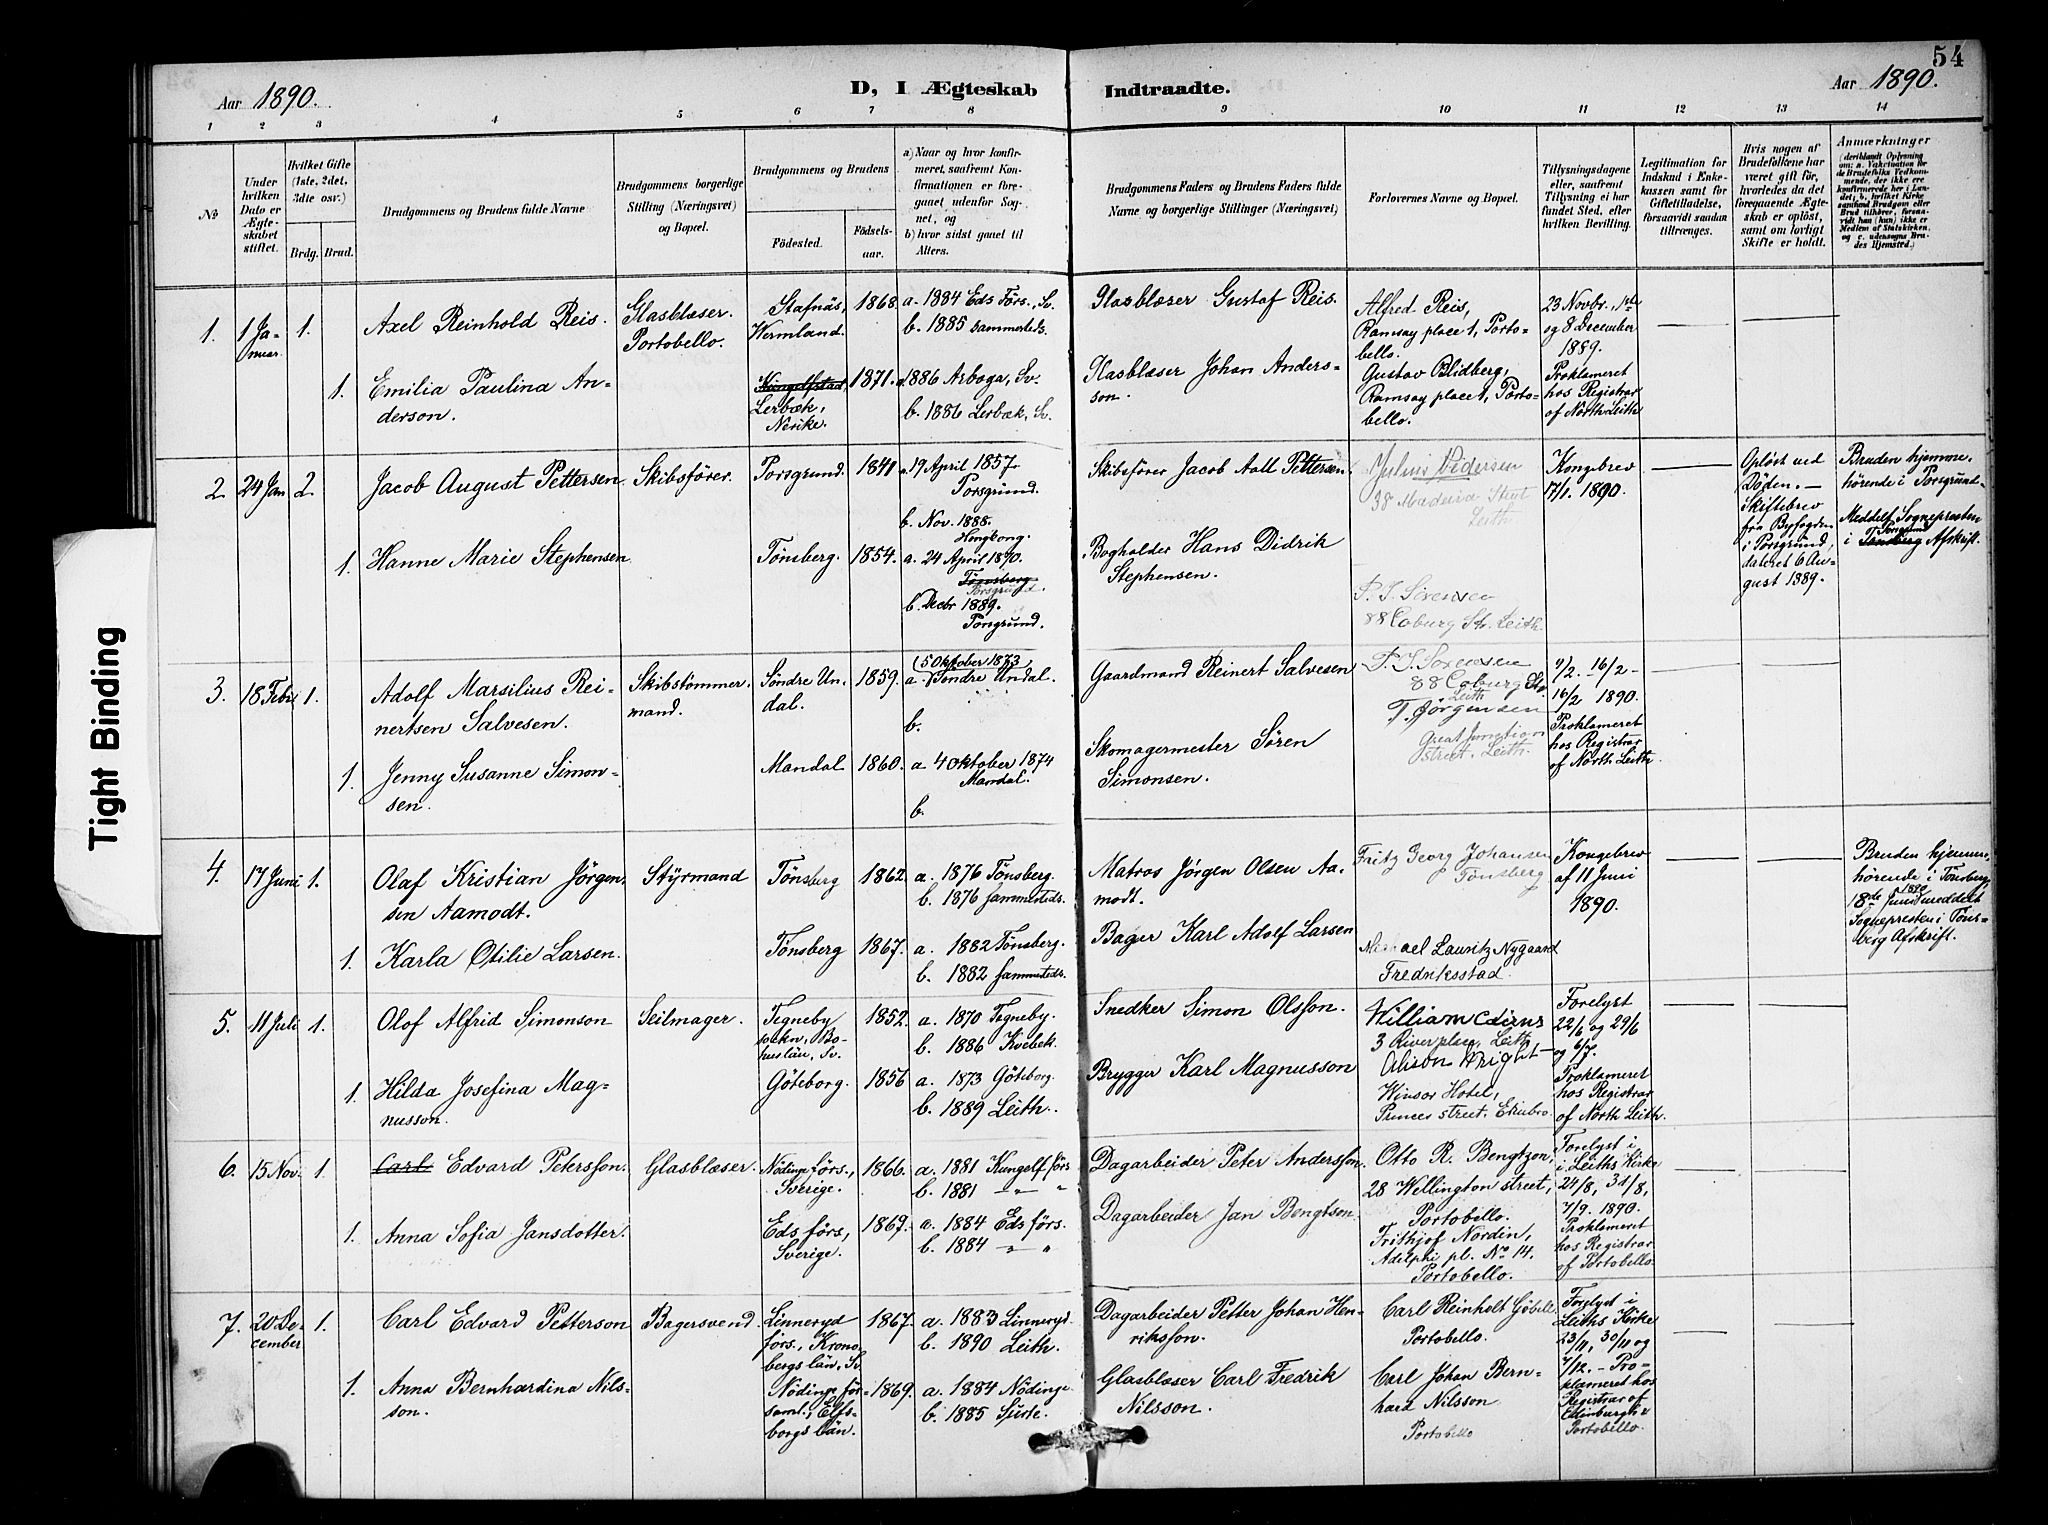 54
Aar 1890.
D, I Ægteskab
Indtraadte.
Aar 1890.
1 2 3 4 5 6 7 8 9 10 11 12 13 14
No
Under hvilken Dato er Ægteskabet stiftet.
Hvilket Gifte (1ste, 2det, 3die osv.)
Brdg. Brud.
Brudgommens og Brudens fulde Navne
Brudgommens borgerlige Stilling (Næringsvei) og Bopæl.
Brudgommens og Brudens
Fødested.
Fødselsaar.
a) Naar og hvor konfirmeret, saafremt Konfirmationen er foregaaet udenfor Sognet, og
b) hvor sidst gaaet til Alters.
Brudgommens Faders og Brudens Faders fulde Navne og borgerlige Stillinger (Næringsvei)
Forlovernes Navne og Bopæl.
Tillysningsdagene eller, saafremt Tillysning ei har fundet Sted, efter hvilken Bevilling.
Legitimation for Indskud i Enkekassen samt for Giftetilladelse, forsaavidt saadan tiltrænges.
Hvis nogen af Brudefolkene har været gift før, hvorledes da det foregaaende Ægteskab er opløst, samt om lovligt Skifte er holdt.
Anmærkninger
(deriblandt Oplysning om: a. Vakcination for de Brudefolks Vedkommende, der ikke ere konfirmerede her i Landet; b. hvilket Kirkesamfund Brudgom eller Brud tilhører, forsaavidt han (hun) ikke er Medlem af Statskirken, og c. udensogns Brudes Hjemsted.)
1. 1 Januar. 1.
Axel Reinhold Reis.
Glasblæser.
Portobello.
Stafnäs,
Wermland.
1868.
a. 1884 Eds Förs., Sv.
b. 1885 sammesteds.
Glasblæser Gustaf Reis.
Alfred Reis,
Ramsay place 1, Porto-
bello.
23 Novbr., 1ste
og 8 December
1889.
1.
Emilia Paulina An-
derson.
Kungelfstad,
Lerbæk,
Nerike.
1871.
a. 1886 Arboga, Sv.
b. 1886 Lerbæk, Sv.
Glasblæser Johan Anders-
son.
Gustav Blidberg,
Ramsay place 1, Porto-
bello.
Proklameret
hos Registrar
of North Leith
2. 24 Jan 2.
Jacob August Pettersen.
Skibsfører.
Porsgrund.
1841
a. 19 April 1857
Porsgrund.
b. Nov. 1888.
Hongkong.
Skibsfører Jacob Aall Pettersen.
Julius Pedersen
38 Madeira Street
Leith
Kongebrev
17/1. 1890.
Opløst ved
Døden. —
Skiftebrev
fra Byfogden
i Porsgrund,
dateret 6 Au-
gust 1889.
Bruden hjemme-
hørende i Porsgrund.
Meddelt Sognepresten
i Tønsberg Porsgrund Afskrift.
1.
Hanne Marie Stephensen
Tønsberg.
1854.
a. 24 April 1870.
Tønsberg.
Porsgrund.
b. Decbr 1889.
Porsgrund.
Bogholder Hans Didrik
Stephensen.
P. S. Sörensen
88 Coburg Str. Leith.
3. 18 Febr 1.
Adolf Marsilius Rei-
nertsen Salvesen.
Skibstømmer-
mand.
Søndre Un-
dal.
1859.
(5 Oktober 1873)
a. Søndre Undal.
b.
Gaardmand Reinert Salvesen
P. S. Sörensen
88 Coburg Str.
Leith
9/2. 16/2 -
16/2 1890.
1.
Jenny Susanne Simon-
sen.
Mandal
1860.
a. 4 Oktober 1874
Mandal.
b.
Skomagermester Søren
Simonsen.
T. Jørgensen
Great Junction
street, Leith.
Proklameret
hos Registrar
of North Leith.
4. 17 Juni 1.
Olaf Kristian Jørgen-
sen Aamodt.
Styrmand
Tønsberg
1862
a. 1876 Tønsberg.
b. 1876 sammesteds.
Matros Jørgen Olsen Aa-
modt.
Fritz Georg Johansen
Tønsberg
Kongebrev
af 11 Juni
1890.
Bruden hjemme-
hørende i Tønsberg
18de Juni 1890 meddelt
Sognepresten i Tøns-
berg Afskrift.
1.
Karla Otilie Larsen.
Tønsberg
1867.
a. 1882 Tønsberg.
b. 1882 sammesteds.
Bager Karl Adolf Larsen
Michael Lauritz Nygaard
Fredriksstad.
5. 11 Juli 1.
Olof Alfrid Simonson
Seilmager.
Tegneby
sokn, Bo-
huslän, Sv.
1852.
a. 1870 Tegneby.
b. 1886 Kvebek.
Snedker Simon Olsson.
William
3 River place, Leith
Forelyst
22/6 og 29/6
og 6/7.
1.
Hilda Josefina Mag-
nusson.
Göteborg.
1856
a. 1873 Göteborg.
b. 1889 Leith.
Brygger Karl Magnusson
Alison Wright
Winsor Hotel,
Princes street, Edinbro.
Proklameret
hos Registrar
of North Leith.
6. 15 Nov. 1.
Carl Edvard Petersson.
Glasblæser.
Nödinge förs.,
Sverige.
1866.
a. 1881 Kungelf förs
b. 1881 — " — "
Dagarbeider Peter Andersson.
Otto R. Bengtzon,
28 Wellington street,
Portobello.
Forelyst i
i Leiths Kirke
24/8, 31/8,
7/9. 1890.
1.
Anna Sofia Jansdotter.
Eds förs,
Sverige.
1869.
a. 1884 Eds förs.
b. 1884 " "
Dagarbeider Jan Bengtson.
Frithjof Nordin,
Adelphi pl. No 14.
Portobello.
Proklameret
hos Registrar
of Portobello.
7. 20 De-
cember 1.
Carl Edvard Petterson
Bagersvend.
Linneryd
förs., Krono-
bergs län, Sv.
1867.
a. 1883 Linneryd
b. 1890 Leith.
Dagarbeider Petter Johan Hen-
riksson.
Carl Reinholt Göbel.
Portobello.
Forelyst i
Leiths Kirke
23/11, 30/11 og
7/12. - Pro-
klameret hos
Registrar of
Edinburgh &
Portobello.
1.
Anna Bernhardina Nils-
son.
Nödinge för-
saml., Elfs-
borgs län.
1869.
a. 1884 Nödinge
b. 1885 Surte.
Glasblæser Carl Fredrik
Nilsson.
Carl Johan Bern-
hard Nilsson
Portobello
Tight Binding